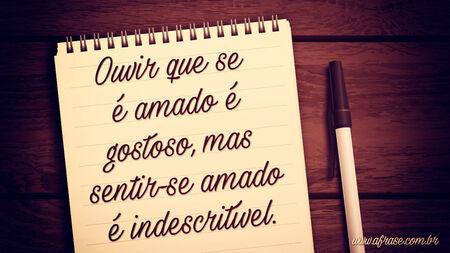 Ouvir que se
é amado é
gostoso, mas
sentir-se amado
é indescritível.
www.afrase.com.br